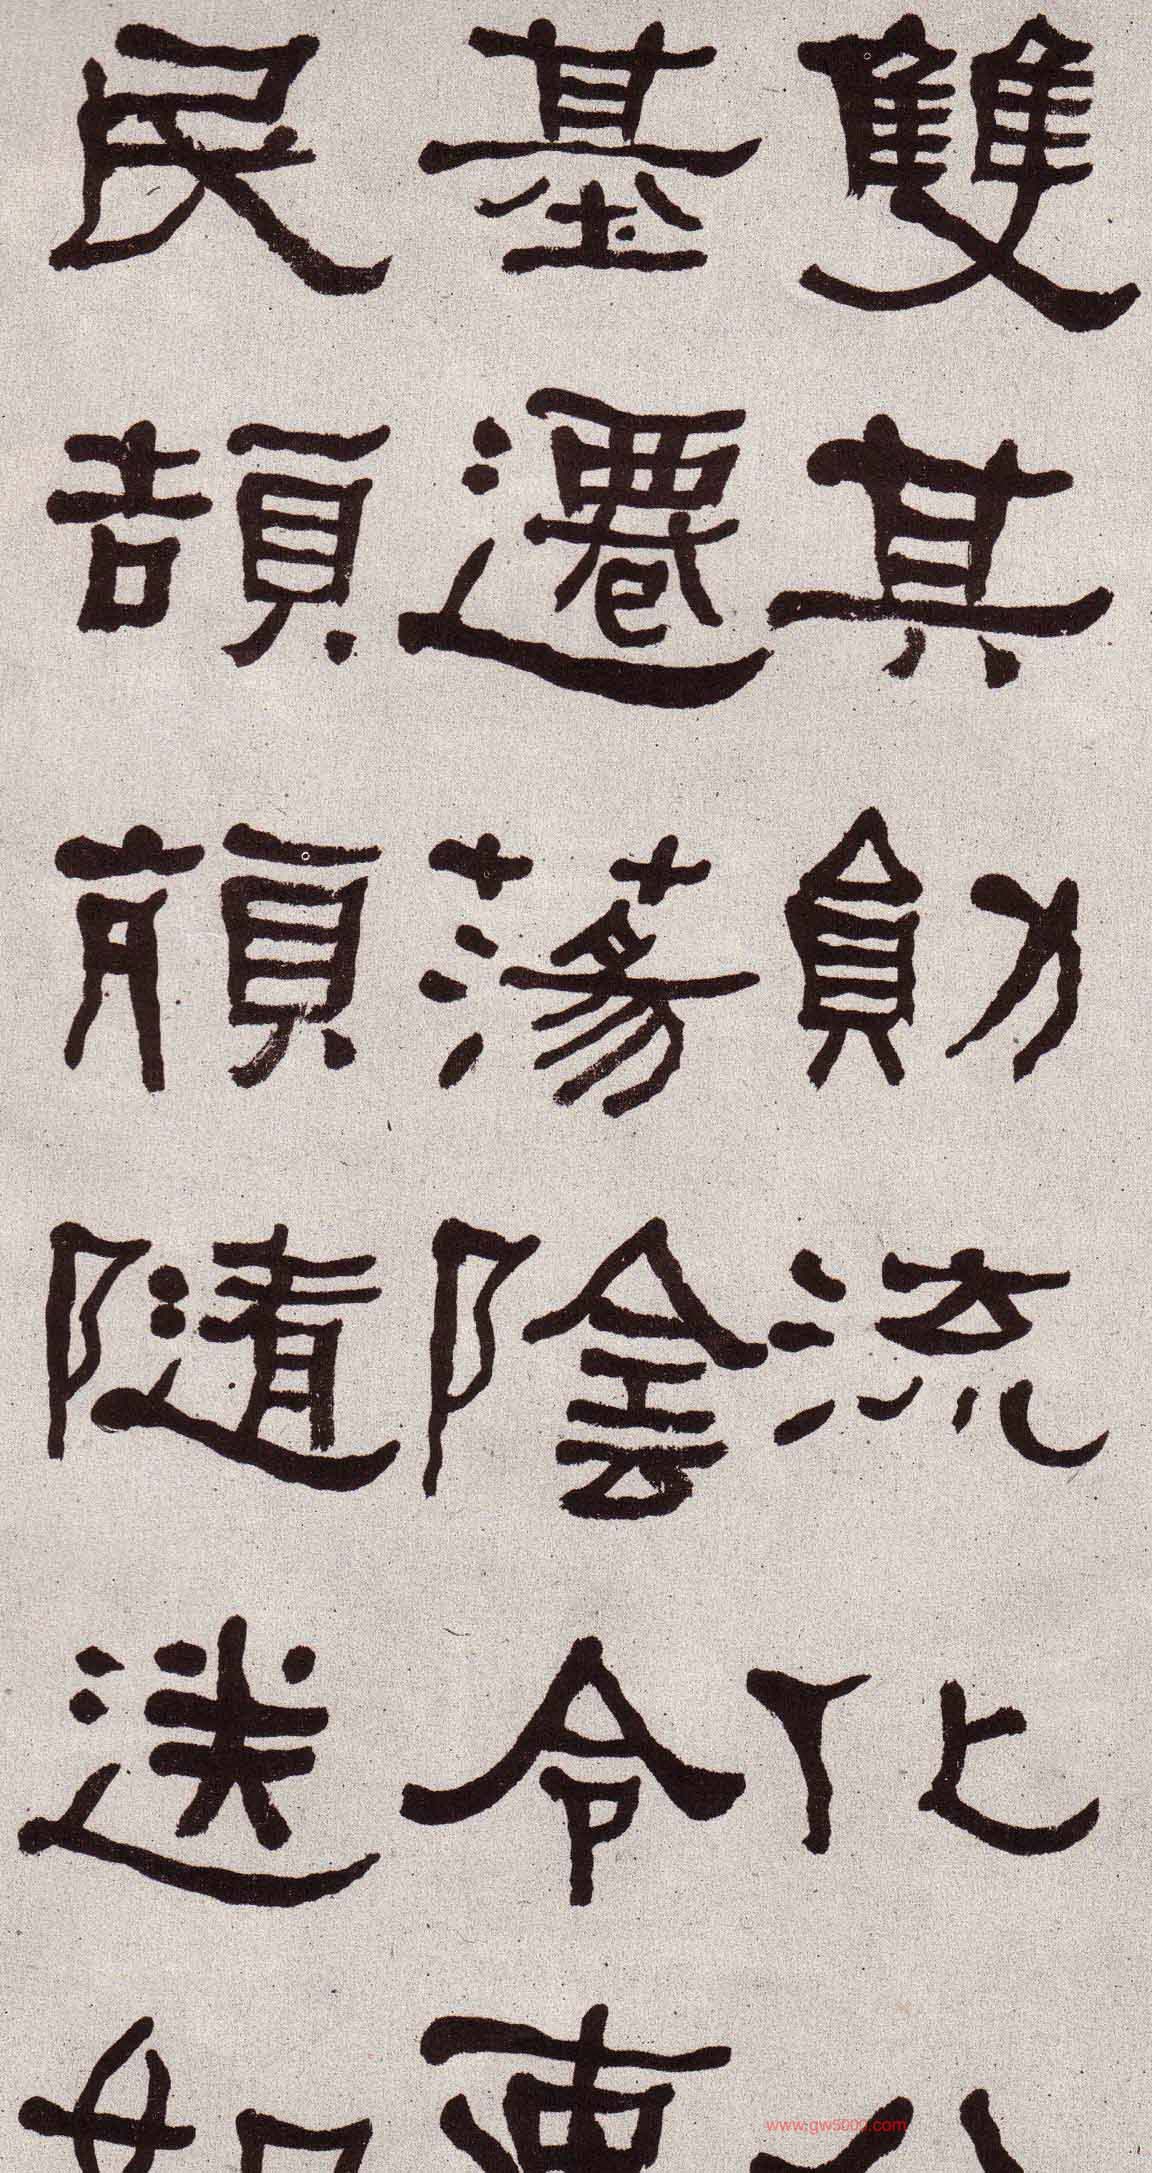 雙其勛流化八
基遷蕩陰令吏
民頡頏隨送如
www.gw5000.com